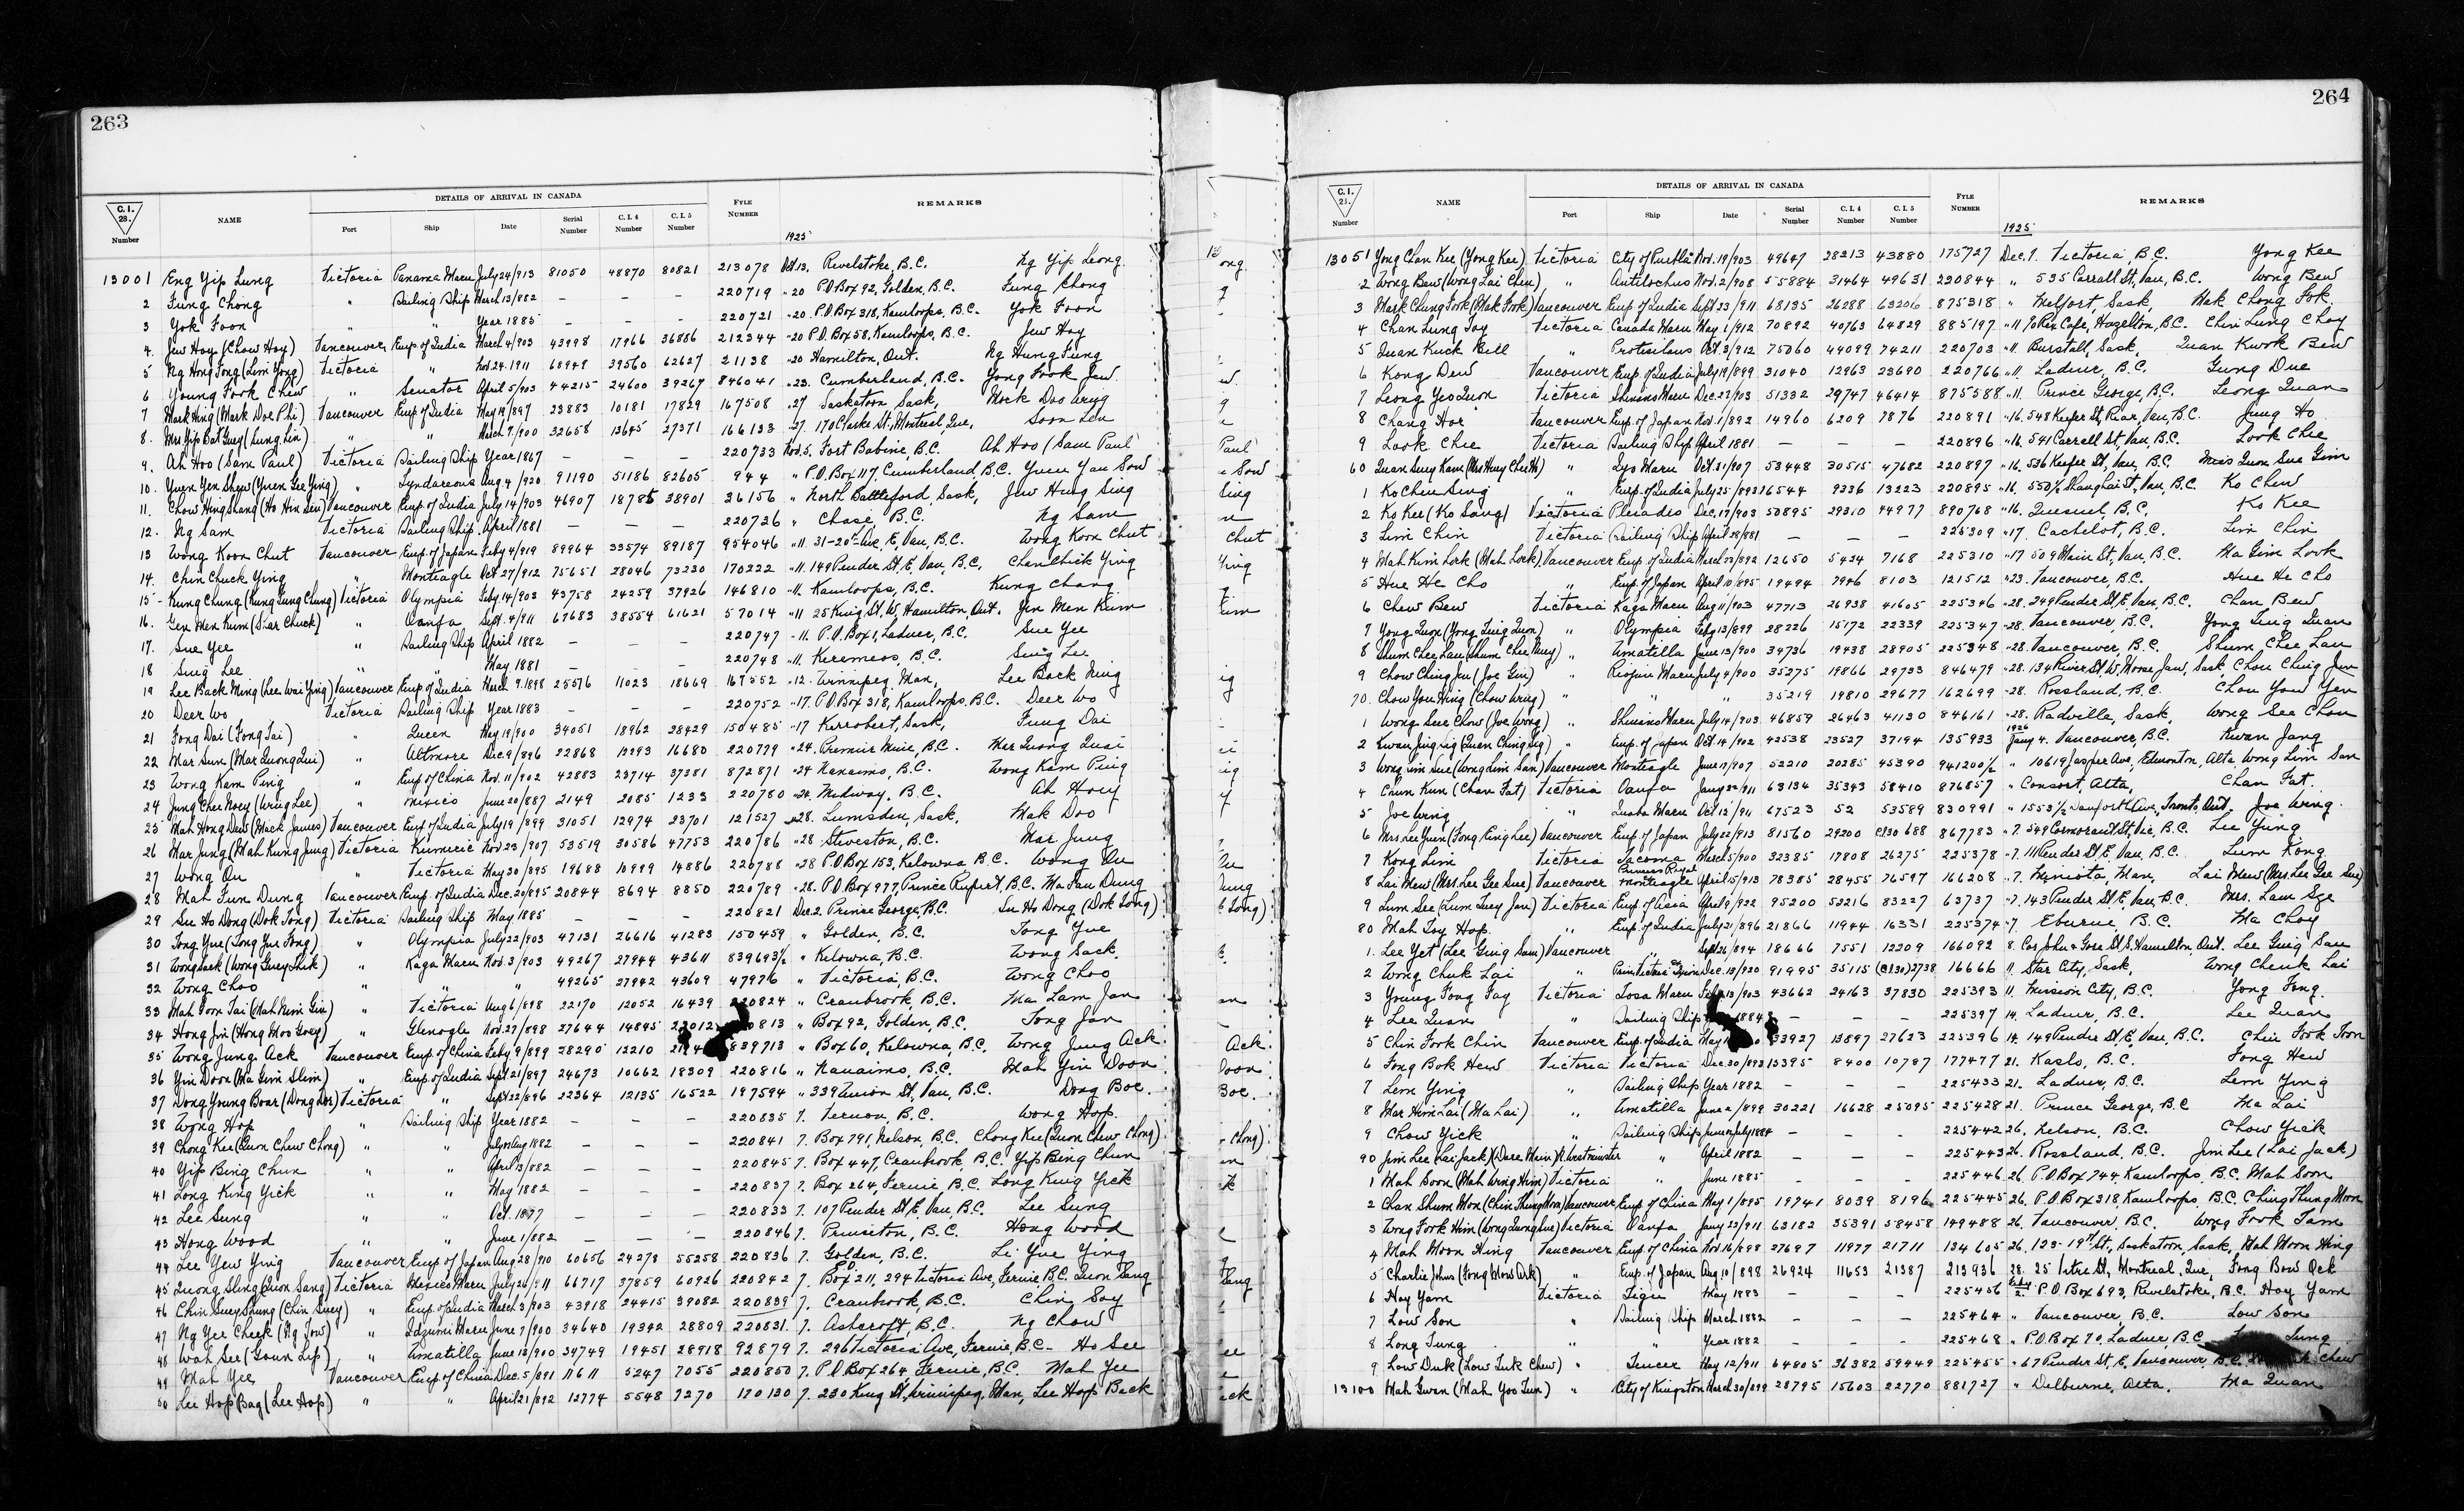 263
DETAILS OF ARRIVAL IN CANADA
C.I. 28. Number NAME Port Ship Date Serial Number C.I.4 Number C.I.5 Number FYLE NUMBER REMARKS
1925
13001 Eng Yip Lung Victoria Panama Maru July 24/913 81050 48870 80821 213078 Oct 13. Revelstoke, B.C. Ng Yip Leong
2 Fung Chong " Sailing Ship March 13/882 – – – 220719 " 20 P.O. Box 92, Golden, B.C. Fung Chong
3 Yok Foon " " Year 1885 – – – 220721 " 20. P.O. Box 318, Kamloops, B.C. Yok Foon
4. Jew Hoy (Chow Hoy) Vancouver Emp. of India March 4/903 43998 17966 36886 212344 " 20 P.O. Box 58, Kamloops, B.C. Jew Hoy
5 Ng Hong Fong (Lim Yong) Victoria " Nov. 24. 1911 68949 39560 62627 21138 " 20 Hamilton, Ont. Ng Hung Fung
6 Young Fook Chew " Senator April 5/903 44215 24600 39267 846041 " 23. Cumberland, B.C. Yong Fook Jew
7 Mark Hing (Mark Doe Phi) Vancouver Emp of India May 19/897 23883 10181 17829 167508 " 27 Saskatoon Sask, Mock Doo Wing
8. Mrs Yip Bat Guey (Lung Lin) " " March 7/900 32658 13645 27371 166133 " 27. 170 Clarke St, Montreal, Que, Soon Len
9. Ah Hoo (Sam Paul) Victoria Sailing Ship Year 1867 – – – 220733 Nov. 5. Fort Babine, B.C. Ah Hoo (Sam Paul)
10. Yuen Yen Shew (Yuen Gee Ying) " Tyndareous Aug 4/920 91190 51186 82605 944 " P.O. Box 117, Cumberland B.C. Yuen Yau Sow
11. Chow Hing Shang (Ho Hin Sen) Vancouver Emp. of India July 14/903 46907 18785 38901 36156 " North Battleford, Sask, Jew Hing Sing
12. Ng Sam Victoria Sailing Ship April 1881 – – – 220726 " Chase, B.C. Ng Sam
13 Wong Koon Chut Vancouver Emp. of Japan Feby 4/919 89964 33574 89187 954046 " 11. 31-20th Ave, E, Van, B.C. Wong Koon Chut
14. Chin Chuck Ying " Monteagle Oct 27/912 75651 28046 73230 170222 " 11. 149 Pender St, E, Van, B.C. Chan Chick Ying
15 - Kung Chung (Kung Gung Chung) Victoria Olympia Feby 14/903 43758 24259 37926 146810 " 11. Kamloops, B.C. Kung Chang
16. Gen Men Kum (Star Chuck) " Oanfa Sept. 4/911 67683 38554 61621 57014 " 11 25 King St. W. Hamilton, Ont. Yin Men Kum
17. Sue Yee " Sailing Ship April 1882 – – – 220747 - 11. P.O. Box 1, Ladner, B.C. Sue Yee
18 Sing Lee " " May 1881 – – – 220748 " 11. Keremeos, B.C. Sing Lee
19 Lee Back Ming (Lee Wai Ying) Vancouver Emp of India March 9.1898 25576 11023 18669 167552 " 12. Winnipeg, Man, Lee Back Ming
20 Deer Wo Victoria Sailing Ship Year 1883 – – – 220752 " 17. P.O. Box 318, Kamloops, B.C. Deer Wo
21 Fong Dai (Fong Tai) " Queen May 19/900 34051 18962 28429 150485 " 17 Kerrobert, Sask, Fung Dai
22 Mar Sun (Mar Quong Qui) " Altmore Dec. 9/896 22868 12293 16680 220779 " 24. Premier Mine, B.C. Mar Quong Quai
23 Wong Kam Ping " Emp of China Nov. 11/902 42883 23714 37381 872871 " 24 Nanaimo, B.C. Wong Kam Ping
24 Jung Chee Hoey (Wing Lee) " Mexico June 20/887 2149 2085 1233 220780 " 24. Midway, B.C. Ah Hoey
25 Mah Hong Dew (Mack James) Vancouver Emp. of India July 19/899 31051 12974 23701 121527 " 28. Lumsden, Sask, Mak Doo
26 Mar Jung (Mah Kung Jung) Victoria Kumeric Nov 23/907 53519 30586 47753 220786 " 28 Steveston, B.C. Mar Jung
27 Wong Qu " Victoria May 30/895 19688 10999 14886 220788 " 28 P.O. Box 153, Kelowna B.C. Wong Qu
28 Mah Fun Dung Vancouver Emp. of India Dec. 20/895 20844 8694 8850 220789 " 28. P.O. Box 977, Prince Rupert, B.C. Ma Fau Dung
29 Su Ho Dong (Dok Tong) Victoria Sailing Ship May 1885 – – – 220821 Dec. 2. Prince George, B.C. Su Ho Dong (Dok Tong)
30 Tong Yue (Tong Yue Tong) " Olympia July 22/903 47131 26616 41283 150459 " Golden, B.C. Tong Yue
31 Wong Sack (Wong Guey Shik) " Kaga Maru Nov. 3/903 49267 27944 43611 839693½ " Kelowna, B.C. Wong Sack
32 Wong Choo " " " 49265 27942 43609 47976 " Victoria, B.C. Wong Choo
33 Mah Goon Tai (Mah Nim Gin) " Victoria Aug 6/898 22170 12052 16439 220824 " Cranbrook, B.C. Ma Lam Jan
34 Hong Jin (Hong Moo Goey) " Glenogle Nov. 27/898 27644 14845 22012 813 " Box 92, Golden, B.C. Tong Jan
35 Wong Jung Ack Vancouver Emp. of China Feby 9/899 28290 12210 839713 " Box 60, Kelowna, B.C. Wong Jung Ack
36 Yin Doon (Ma Gim Slim) " Emp. of India Sept 21/897 24673 10662 18309 220816 " Nanaimo, B.C. Mah Yin Doon
37 Dong Young Boar (Dong Dor) Victoria " Sept 22/896 22364 12135 16522 197594 " 339 Union St, Van, B.C. Dong Boe.
38 Wong Hop " Sailing Ship Year 1882 – – – 220835 7. Vernon, B.C. Wong Hop.
39 Chong Kee (Quon Chew Chong) " " July or Aug 1882 – – – 220841 7. Box 791, Nelson, B.C. Chong Kee (Quon Chew Chong)
40 Yip Bing Chun " " April 3/882 – – – 220845 7. Box 447, Cranbrook, B.C. Yip Bing Chun
41 Long King Yick " " May 1882 – – – 220837 7. Box 264, Fernie, B.C. Long King Yick
42 Lee Sung " " Oct. 1877 – – – 220833 7. 107 Pender St, E, Van, B.C. Lee Sung
43 Hong Wood " " June 1/882 – – – 220846 7. Princeton, B.C. Hong Wood
44 Lee Yew Ying Vancouver Emp. of Japan Aug 28/910 60656 24278 55258 220836 7. Golden, B.C. Li Yue Ying
45 Quong Sling (Quon Sang) Victoria Mexico Maru July 26/911 66717 37859 60926 220842 7. Box 211, 294 Victoria Ave, Fernie, B.C. Quon Sang
46 Chin Suey Spung (Chin Suey) " Emp. of India March 3/903 43918 24415 39082 220839 7. Cranbrook, B.C. Chin Soy
47 Ng Yee Cheek (Ng Tow) " Idzumi Maru June 7/900 34640 19342 28809 220831. 7. Ashcroft, B.C. Ng Chow
48 Wah See (Goun Lip) " Umatilla June 13/900 34749 19451 28918 92879 7. 296 Victoria Ave, Fernie, B.C. Ho See
49 Mah Yee Vancouver Emp of China Dec. 5/891 11611 5247 7055 220850 7. P.O. Box 264 Fernie, B.C. Mah Yee
50 Lee Hop Bag (Lee Hop) " " April 21/892 12774 5548 7270 170130 7. 230 King St, Winnipeg, Man, Lee Hop Back
264
DETAILS OF ARRIVAL IN CANADA
C.I. 28. Number NAME Port Ship Date Serial Number C.I.4 Number C.I.5 Number FYLE NUMBER REMARKS
1925
13051 Yong Clan Kee (Yong Kee) Victoria City of Puebla Nov. 19/903 49647 28213 43880 175727 Dec. 7. Victoria, B.C. Yong Kee
2 Wong Bew (Wong Lai Chew) " Antilochus Nov. 2/908 55884 31464 49631 220844 " 535 Carrall St, Van, B.C. Wong Bew
3 Mark Chung Fook (Mak Fook) Vancouver Emp. of India Sept. 23/911 68135 26288 63206 875318 " Melfort, Sask, Mak Chong Fok.
4 Chan Lung Toy Victoria Canada Maru May 1/912 70892 40763 64829 885197 " 11 % Rex Cafe, Hazelton, B.C. Chin Lung Choy
5 Quan Kuck Bell " Protesilaus Oct. 3/912 75060 44099 74211 220703 " 11. Burstall, Sask, Quan Kwok Bew
6 Kong Dew Vancouver Emp. of India July 19/899 31040 12963 23690 220766 " 11. Ladner, B.C. Gung Due
7 Leong Yeo Quon Victoria Shinano Maru Dec. 22/903 51332 29747 46414 875588 " 11. Prince George, B.C. Leong Quan
8 Chang Hor Vancouver Emp. of Japan Nov. 1/892 14960 6209 7876 220891 " 16. 548 Keefer St, Rear, Van, B.C. Jung Ho
9 Look Chee Victoria Sailing Ship April 1881 – – – 220896 " 16. 541 Carrell St, Van, B.C. Look Chee
60 Quan Suey Kam (Mrs Huey Chee Hi) " Iyo Maru Oct. 31/907 53448 30515 47682 220897 " 16. 536 Keefer St, Van, B.C. Miss Quon Sue Gim
1 Ko Chew Sing " Emp. of India July 25/893 16544 9336 13223 220895 " 16. 550½ Shanghai St, Van, B.C. Ko Chew
2 Ko Kee (Ko Sang) Victoria Pleiades Dec. 17/903 50895 29310 44977 890768 " 16. Quesnel, B.C. Ko Kee
3 Lim Chin Victoria Sailing Ship April 28/881 – – – 225309 " 17. Cachelot, B.C. Lim Chin
4 Mah Kim Lock (Mah Lock) Vancouver Emp of India March 23/892 12650 5424 7168 225310 " 17 509 Main St, Van, B.C. Ma Gim Look
5 Hue He Cho " Emp. of Japan April 10/895 19494 7946 8103 121512 " 23. Vancouver, B.C. Hue He Cho
6 Chew Bew Victoria Kaga Maru Aug 11/903 47713 26938 41605 225346 " 28. 249 Pender St, E, Van, B.C. Chan Bew
7 Yong Quon (Yong Ting Quon) " Olympia Feby 13/899 28226 15172 22339 225347 " 28. Vancouver, B.C. Yong Ting Quan
8 Shum Chee Lau (Shum Chee Nuey) " Umatilla June 13/900 34736 19438 28905 225348 " 28. Vancouver, B.C. Shum Chee Lau
9 Chow Ching Jew (Joe Gin) " Riojun Maru July 4/900 35275 19866 29733 846479 " 28. 134 River St. W, Moose Jaw, Sask, Chow Ching Jew
70. Chow You Hing (Chow Wing) " " " 35219 19810 29677 162699 " 28. Rossland, B.C. Chow You Yen
1 Wong See Chow (Joe Wong) " Shinano Maru July 14/903 46859 26463 41130 846161 " 28. Radville, Sask, Wong See Chow
1926
2 Kwan Jing Sig (Quan Ching Sig) " Emp. of Japan Oct. 14/902 42538 23527 37194 135933 Jany 4. Vancouver, B.C. Kwan Jang
3 Wong Lim Sue (Wong Lim San) Vancouver Monteagle June 17/907 52210 20285 45390 941200½ " 10619 Jasper Ave, Edmonton, Alta, Wong Lim San
4 Chun Kun (Chan Fat) Victoria Oanfa Jany 22/911 63134 35343 58410 876857 " Consort, Alta, Chan Fat.
5 Joe Wing " Inaba Maru Oct 13/911 67523 52 53589 830991 " 1553½ Danforth Ave, Toronto, Ont. Joe Wing.
6 Mrs. Lee Yuen (Fong King Lee) Vancouver Emp. of Japan July 22/913 81560 29200 CI 30 688 867783 " 7. 549 Cormorant St, Vic, B.C. Lee Ying
7 Kong Lim Victoria Tacoma March 5/900 32385 17808 26275 225378 " 7. 111 Pender St, E, Van, B.C. Lum Kong
8 Lai Mew (Mrs. Lee Gee Sue) Vancouver Princess Royal Monteagle April 5/913 78385 28455 76597 166208 " 7. Miniota, Man, Lai Mew (Mrs. Lee Gee Sue)
9 Lum See (Lum Suey Jan) Victoria Emp of Asia April 9/922 95200 53216 83227 63737 " 7. 143 Pender St, E, Van, B.C. Mrs. Lam Sze
80 Mah Toy Hop " Emp. of India July 21/896 21866 11944 16331 225374 " 7. Eburne, B.C. Ma Choy
1. Lee Yet (Lee Ging Sam) Vancouver " Sept 26/894 18666 7551 12209 166092 8. Cor John & Gore St. S. Hamilton, Ont. Lee Ging Sau
2 Wong Chuk Lai " Dec. 13/920 91995 35115 (CI 30) 2738 16666 11. Star City, Sask, Wong Cheuk Lai
3 Young Fong Fay Victoria Tosa Maru Feby 13/903 43662 24163 37830 225393 11. Mission City, B.C. Yong Fong
4 Lee Quan " Sailing Ship 1884 – – 225397 14. Ladner, B.C. Lee Quan
5 Chin Fook Chin Vancouver Emp of India May 33927 13897 27623 225396 14. 149 Pender St, E, Van, B.C. Chin Fook Toon
6 Fong Bok Hew Victoria Victoria Dec. 30/893 15395 8400 10787 177477 21. Kaslo, B.C. Fong Hew
7 Lem Ying " Sailing Ship Year 1882 – – – 225433 21. Ladner, B.C. Lem Ying
8 Mar Him Lai (Ma Lai) " Umatilla June 2/899 30221 16628 25095 225428 21. Prince George, B.C Ma Lai
9 Chow Yick " Sailing Ship June or July 1884 – – – 225442 26. Nelson, B.C. Chow Yick
90 Jim Lee (Lai Jack) (Dare Main) N. Westminster " April 1882 – – – 225443 26. Rossland, B.C. Jim Lee (Lai Jack)
1 Mah Soon (Mah Wing Him) Victoria " June 1885 – – – 225446 26. P.O. Box 744, Kamloops, B.C. Mah Soon
2 Chan Shum Mon (Chin Thung Mon) Vancouver Emp of China May 1/895 19741 8039 8196 225445 26. P.O. Box 318, Kamloops, B.C. Ching Thung Moon
3 Wong Fook Him (Wong Lung Sue) Victoria Oanfa Jany 22/911 63182 35391 58458 149488 26. Vancouver, B.C. Wong Fook Tam
4 Mah Moon Hing Vancouver Emp. of China Nov. 16/898 27697 11977 21711 134605 26. 123-19th St, Saskatoon, Sask, Mah Moon Hing
5 Charlie Johns (Fong Mow Ark) " Emp. of Japan Aug 10/898 26924 11653 21387 213936 28. 25 Intre St, Montreal, Que, Fong Bow Ock
6 Hoy Yam Victoria Tigre May 1883 – – – 225456 Feby 2. P.O. Box 693, Revelstoke, B.C. Hoy Yam
7 Low Son " Sailing Ship March 1882 – – – 225464 " Vancouver, B.C. Low Son
8 Long Tung " " Year 1882 – – – 225468 " P.O. Box 70, Ladner, B.C. Tung
9 Low Duk (Low Tuk Chew) " Teucer May 12/911 64805 36382 59449 225455 " 67 Pender St, E, Vancouver, B.C. Chew
13100 Mah Gwan (Mah Yoo Tun) " City of Kingston March 30/899 28795 15603 22770 881727 " Delburne, Alta. Ma Quan